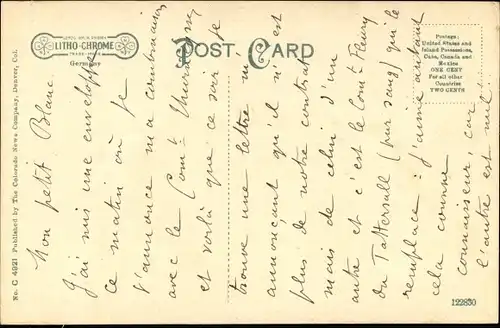 LEIPZIG-BERLIN-DRESDEN
LITHO-CHROME
TRADE-MARK
Germany
POST CARD
Postage:
United States and
Island Possessions,
Cuba, Canada and
Mexico
ONE CENT
For all other
Countries
TWO CENTS
No. C 4921 Published by The Colorado News Company, Denver, Col.
122830
Mon petit Blanc.
J'ai mis une enveloppe
ce matin où je
t'annonce ma combinaison
avec le Comt
et voilà que ce soir je
trouve une lettre m'
annonçant qu'il n'est
plus de notre contrat
mais de celui d'un
autre et c'est le Comt Fleury
du Tattersall (pur sang) qui le
remplace. J'aime autant
cela comme
connaisseur, car
l'autre est nul.